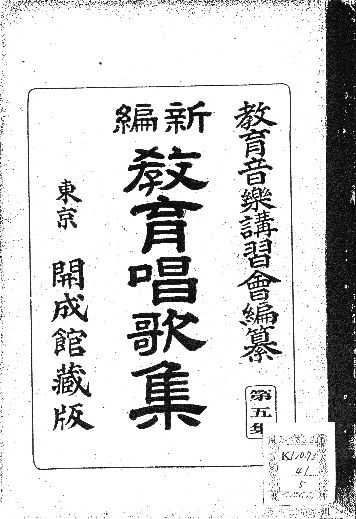 教育音樂講習會編纂
新編
教育唱歌集
第五集
東京
開成館藏版
K110.7
41
5